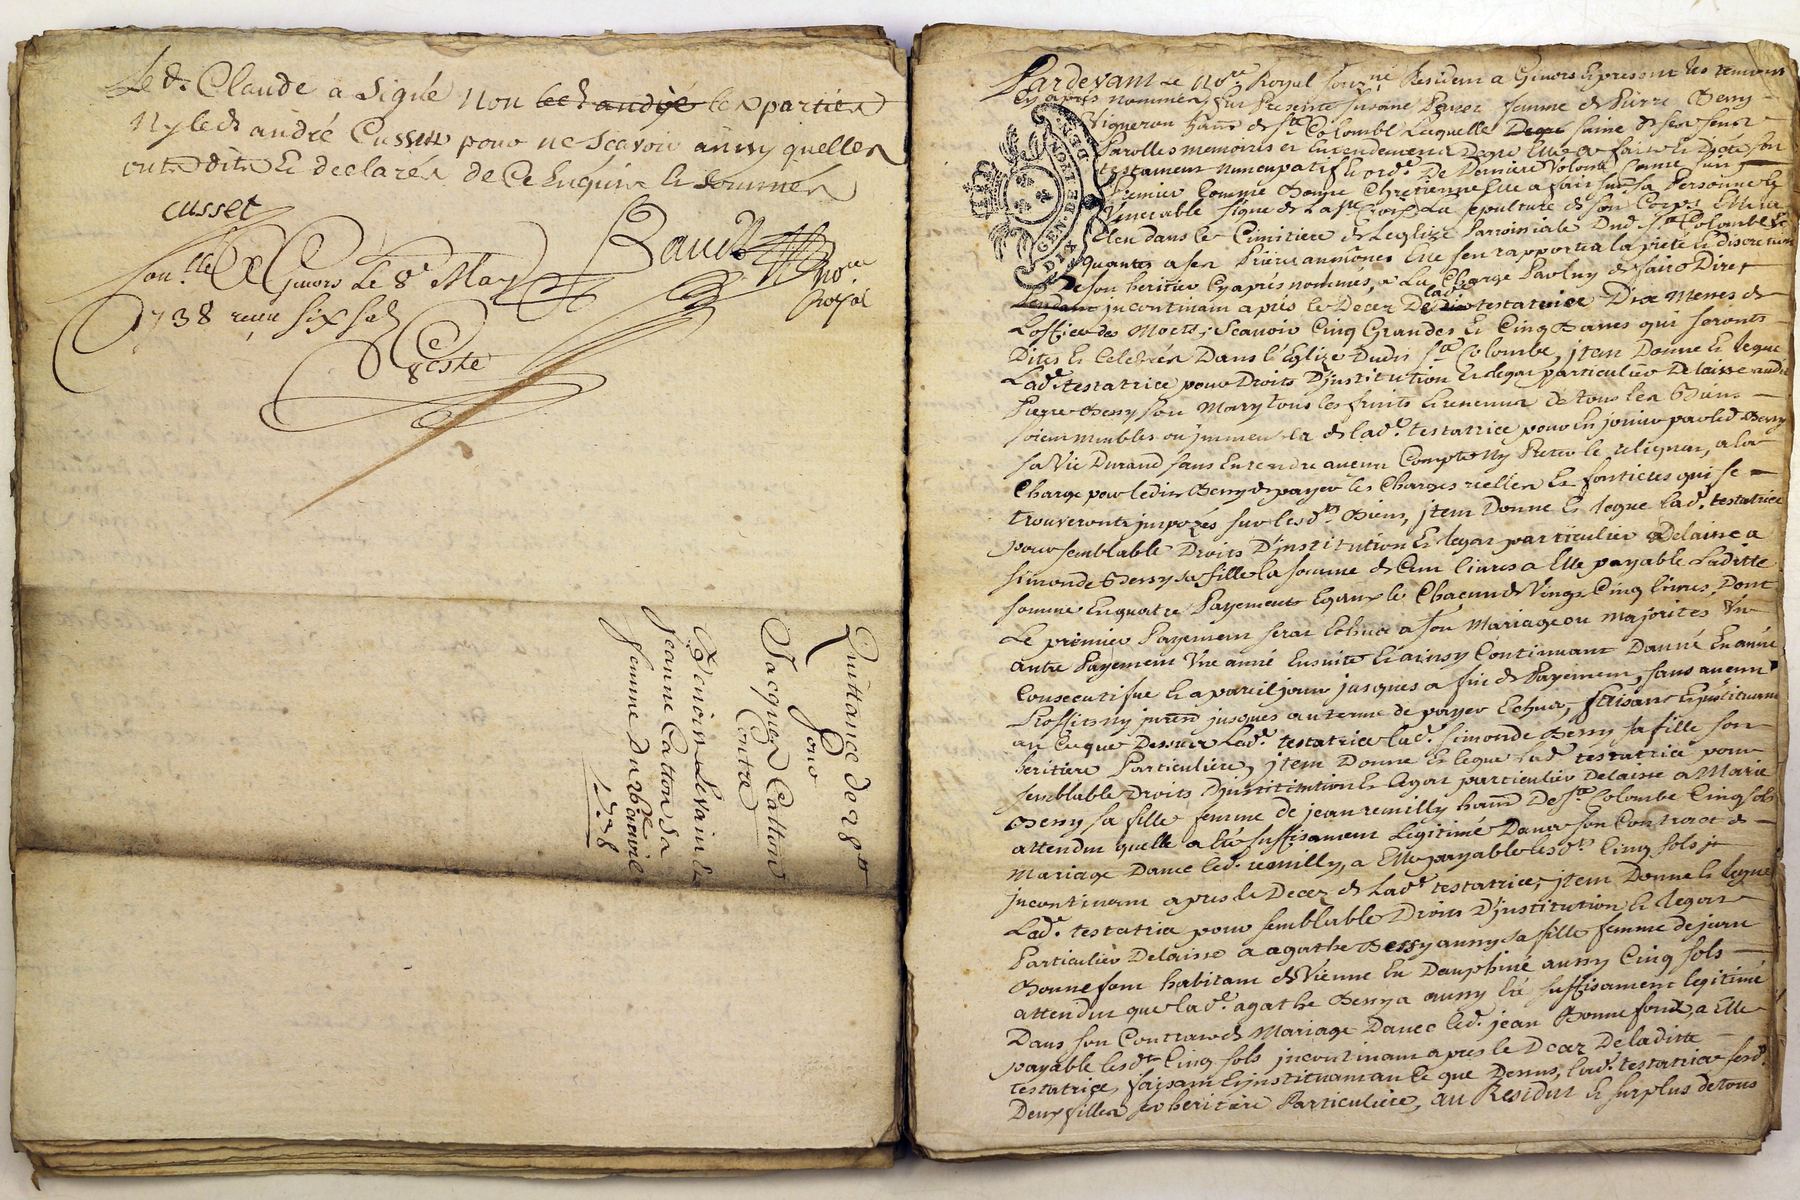 Led. Claude a signé non led andré les parties
Ny led andré Cusset pour ne scavoir ainsy quelles
ont dit et declarés de ce Enquis et sommés
cusset
Baudt nore royal
Con.lle a Givors Le 8e May
1738 receu six sols
Geste
Quittance de 28 tt
Pour
Jacques Catton
Contre
Benoist Levain et
Jeanne Catton sa
femme Du 26e avril
1738
Pardevant Le Nore Royal Residant a Givors et present les temoins
Cy après nommés fut Presente Payet femme de Pierre Bessy
Vigneron hant de Ste Colombe Laquelle saine de ses sens
Parolles memoires et Entendement De gré Elle a fait et Dicté son
testament nuncupatif et ordre De Derniere Volonté Comme suit
Premier Comme Bonne Chretienne Elle a fait sur sa Personne le
Venerable signe de La Ste Croix La sepulture de son Corps Elle la
Eleu dans le Cimitiere de Leglize Parroissiale Dud. Ste Colombe Et
quantes a ses Prieres aumônes Elle sen rapporte a la pieté et discretion
De son heritier Cy après nommés, a La Charge Pavluy de faire Dire
incontinant après le Decez De lad testatrice Dix Messes de
Loffice des Morts; Scavoir Cinq Grandes et Cinq Basses qui seront
Dites et Celebrés Dans l'Eglize Dudit Ste Colombe, jtem Donne et legue
Lade testatrice pour Droits D'institution et legat particulier Delaisse audit
Pierre Bessy son Mary tous les fruits et revenus de tous les Biens
soient meubles ou jmmeubles de lade testatrice pour En jouir par led Bessy
sa Vie Durand sans En rendre aucun Compte Ny Preter le reliquat, a la
Charge pour ledit Bessy de payer les Charges réelles et foncieres qui se
trouveront jmposés sur lesdts Biens, jtem Donne et legue lad. testatrice
pour semblable Droits D'institution et legat particulier Delaisse a
Simonde Bessy sa fille la somme de Cent livres a Elle payable Laditte
somme En quatre Payements Egaux et Chacun de Vingt Cinq livres, Dont
Le premier Payement sera Echus a son Mariage ou majorités Un
autre Payement Une anné Ensuite Et ainsy Continuant D'anné En anné
Consecutifue et a pareil jour jusques a fin de Payement, sans aucun
Proffit ny jnterest jusques au terme de payer Echus, faisant et jnstituant
au Ce que Dessus Lade testatrice lad. Simonde Bessy sa fille son
heritiere Particuliere, jtem Donne et legue lad. testatrice pour
semblable Droits D'institution et legat particulier Delaisse a Marie
Bessy sa fille femme de jean remilly hant De Ste Colombe Cinq sols
attendu quelle a Eté suffisament Legitimé Dans son Contract de
Mariage Davec led. remilly, a Elle payable lesdts Cinq sols
jncontinant apres le Decez de Lade testatrice, jtem Donne et legue
Lad. testatrice pour semblable Droits D'institution et legat
Particulier Delaisse a agathe Bessy aussy sa fille femme de jean
Bonnefont habitant de Vienne En Dauphiné aussy Cinq sols
attendu que lade agathe Bessy a aussy Eté suffisament legitimé
Dans son Contract de Mariage Davec led. jean Bonnefond, a Elle
payable lesdts Cinq sols jncontinant apres le Decez De laditte
testatrice, faisant Et jnstituant au Ce que Dessus, lade testatrice sesd.
Deux filles ses heritiere Particuliere, au Residut et surplus de tous